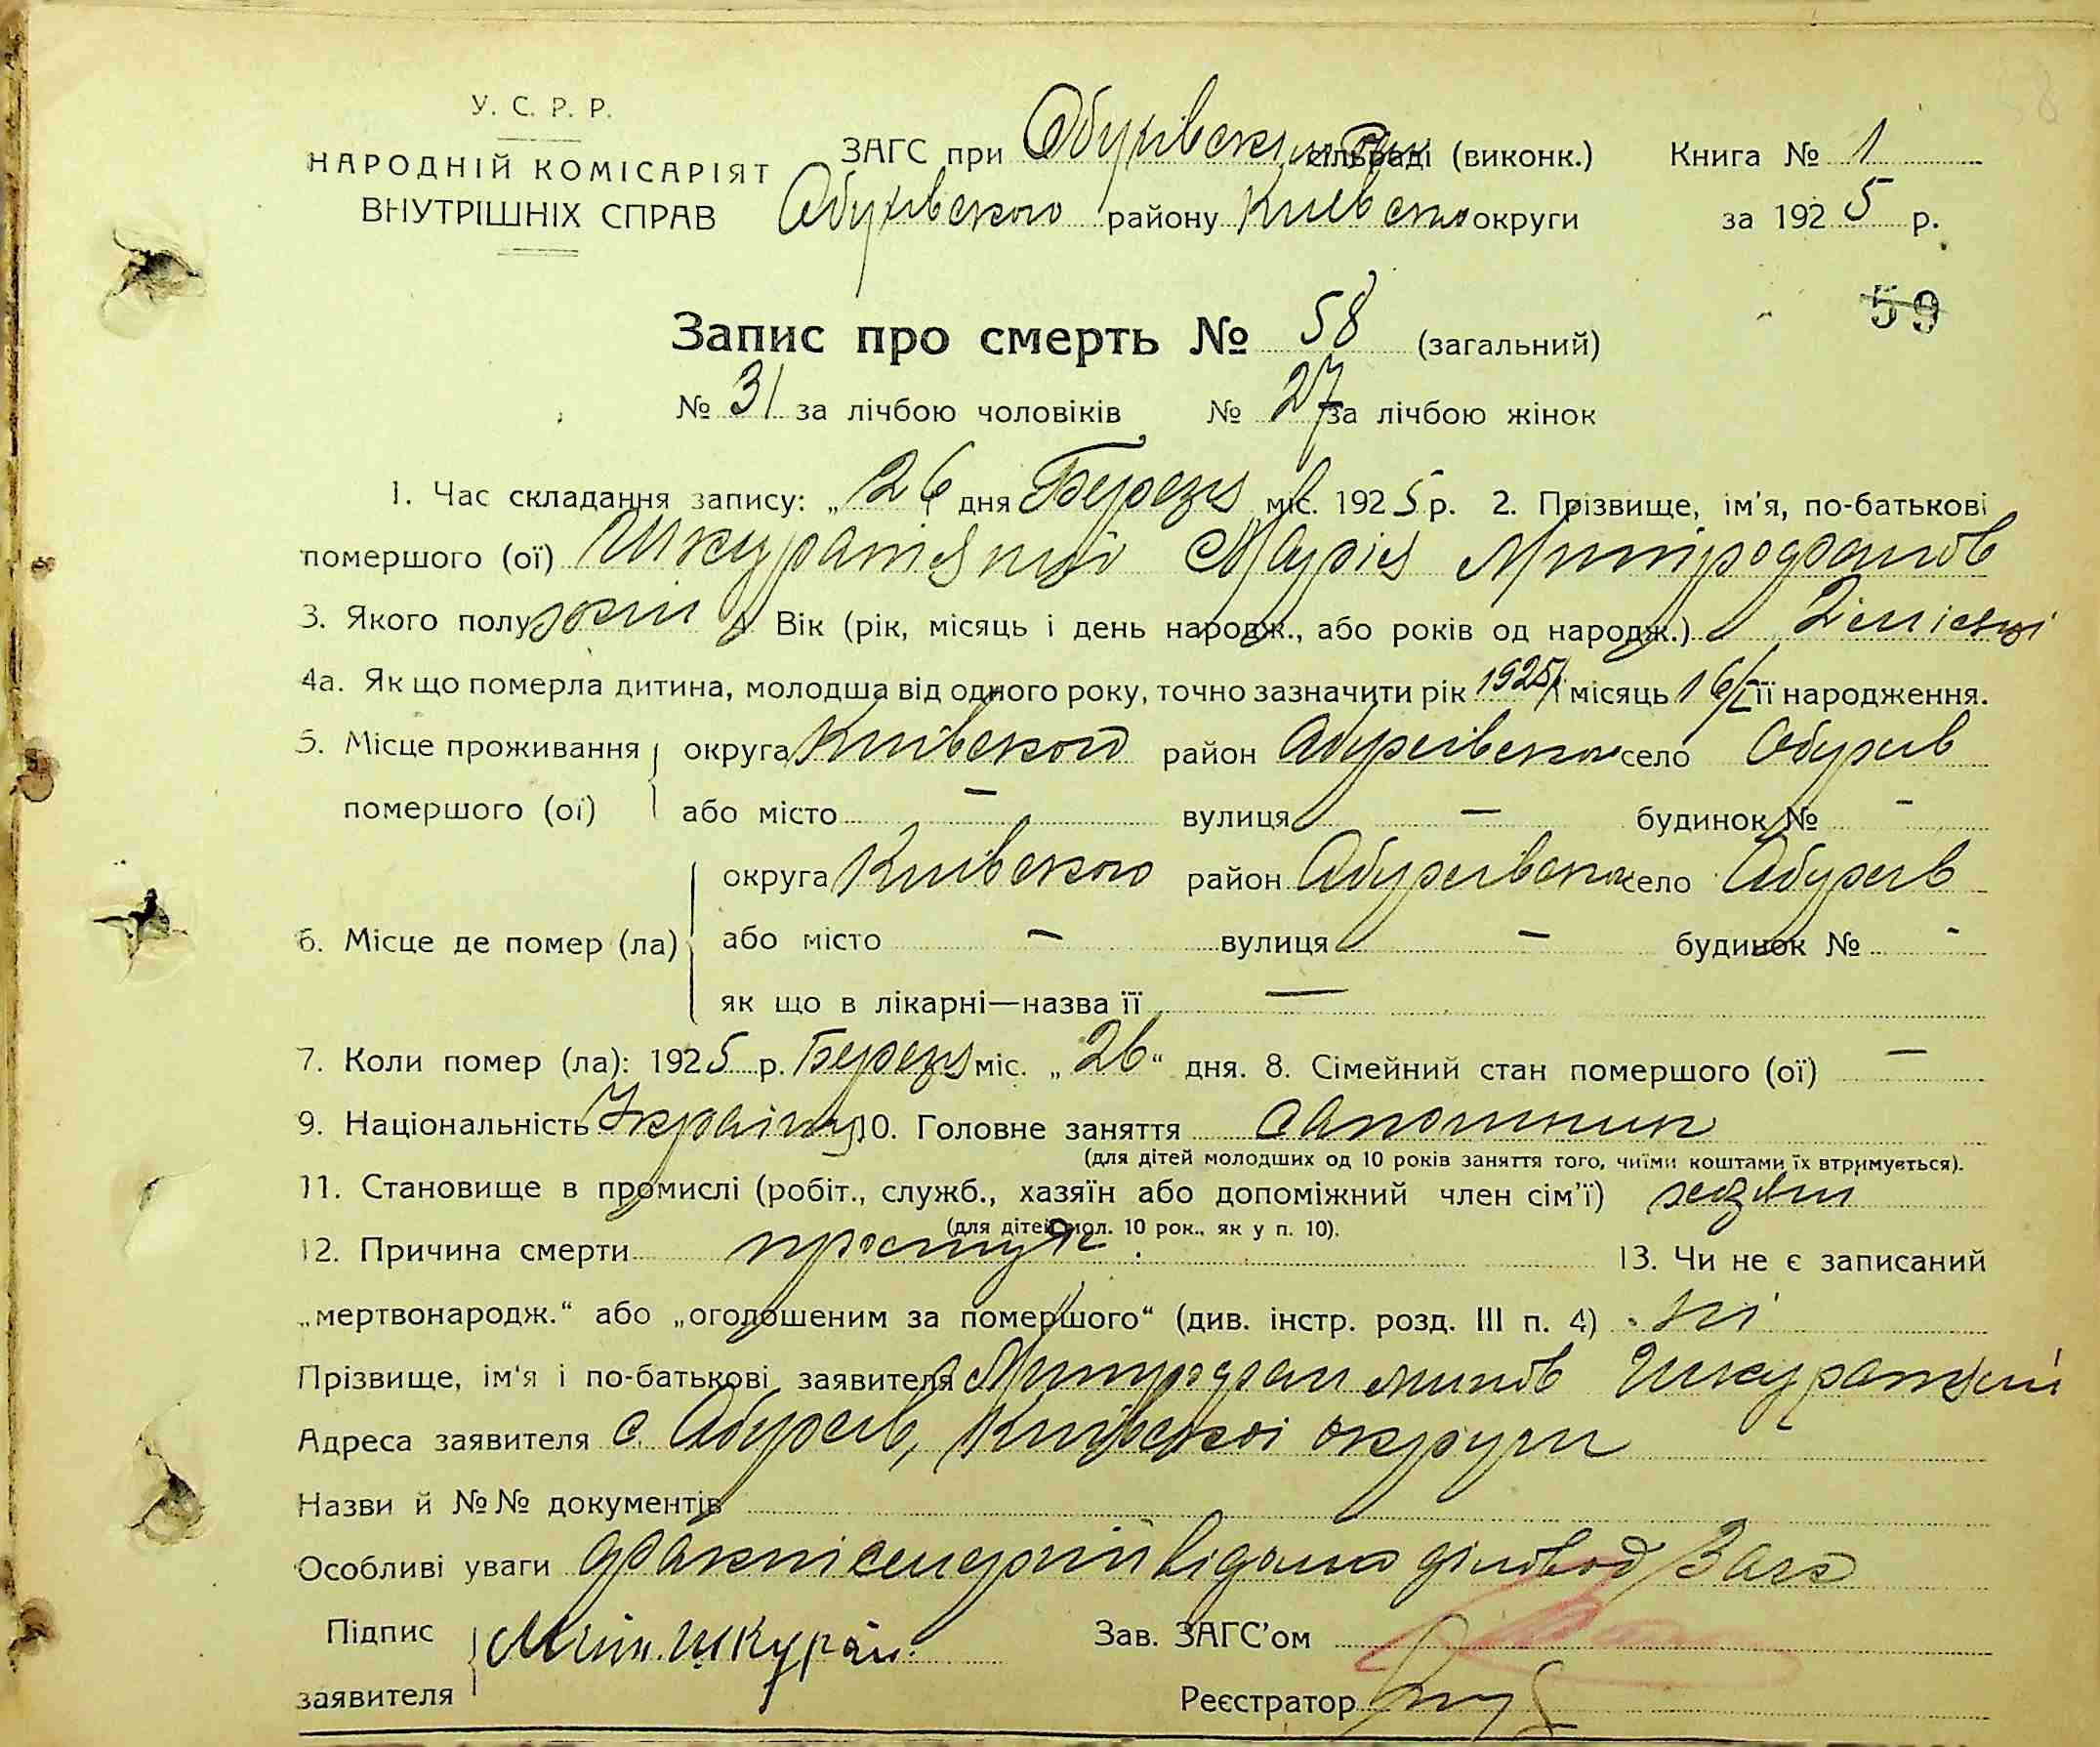 У. С. Р. Р.
НАРОДНІЙ КОМІСАРІЯТ
ВНУТРІШНІХ СПРАВ
ЗАГС при Обухівским сільраді (виконк.) Книга № 1
Обухівського району Київсько округи за 1925 р.
59
Запис про смерть № 58 (загальний)
№ 31 за лічбою чоловіків № 27 за лічбою жінок
1. Час складання запису: „26 дня Березня міс. 1925 р. 2. Прізвище, ім'я, по-батькові
помершого (ої) Марія Митрофанов
3. Якого полу жін 4. Вік (рік, місяць і день народж., або років од народж.) 2 місяці
4а. Як що померла дитина, молодша від одного року, точно зазначити рік 1925 і місяць 16/I її народження.
5. Місце проживання округа Київского район Обухівского село Обухів
помершого (ої) або місто — вулиця — будинок № -
округа Київского район Обухівско село Обухів
6. Місце де помер (ла) або місто — вулиця — будинок № -
як що в лікарні—назва її —
7. Коли помер (ла): 1925 р. Березня міс. „26“ дня. 8. Сімейний стан помершого (ої) —
9. Національність 10. Головне заняття сапожник
(для дітей молодших од 10 років заняття того, чиїми коштами їх втримується).
11. Становище в промислі (робіт., служб., хазяїн або допоміжний член сім'ї) хазяїн
(для дітей мол. 10 рок., як у п. 10).
12. Причина смерти 13. Чи не є записаний
„мертвонародж.“ або „оголошеним за помершого“ (див. інстр. розд. III п. 4) ні
Прізвище, ім'я і по-батькові заявителя Митрофан
Адреса заявителя с. Обухів, Київскоі округи
Назви й №№ документів
Особливі уваги діловод Загс
Підпис Зав. ЗАГС'ом
заявителя Реєстратор